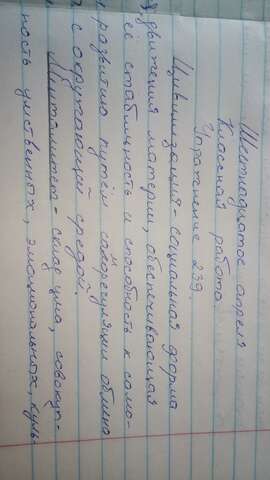 Шестнадцатое апреля
Классная работа
Упражнение 239.
Цивилизация - социальная форма
движения материи, обеспечивающая
её стабильность и способность к само-
развитию путём саморегуляции обмена
с окружающей средой.
Интеллект - сумма, совокуп-
ность умственных, эмоциональных, куль-